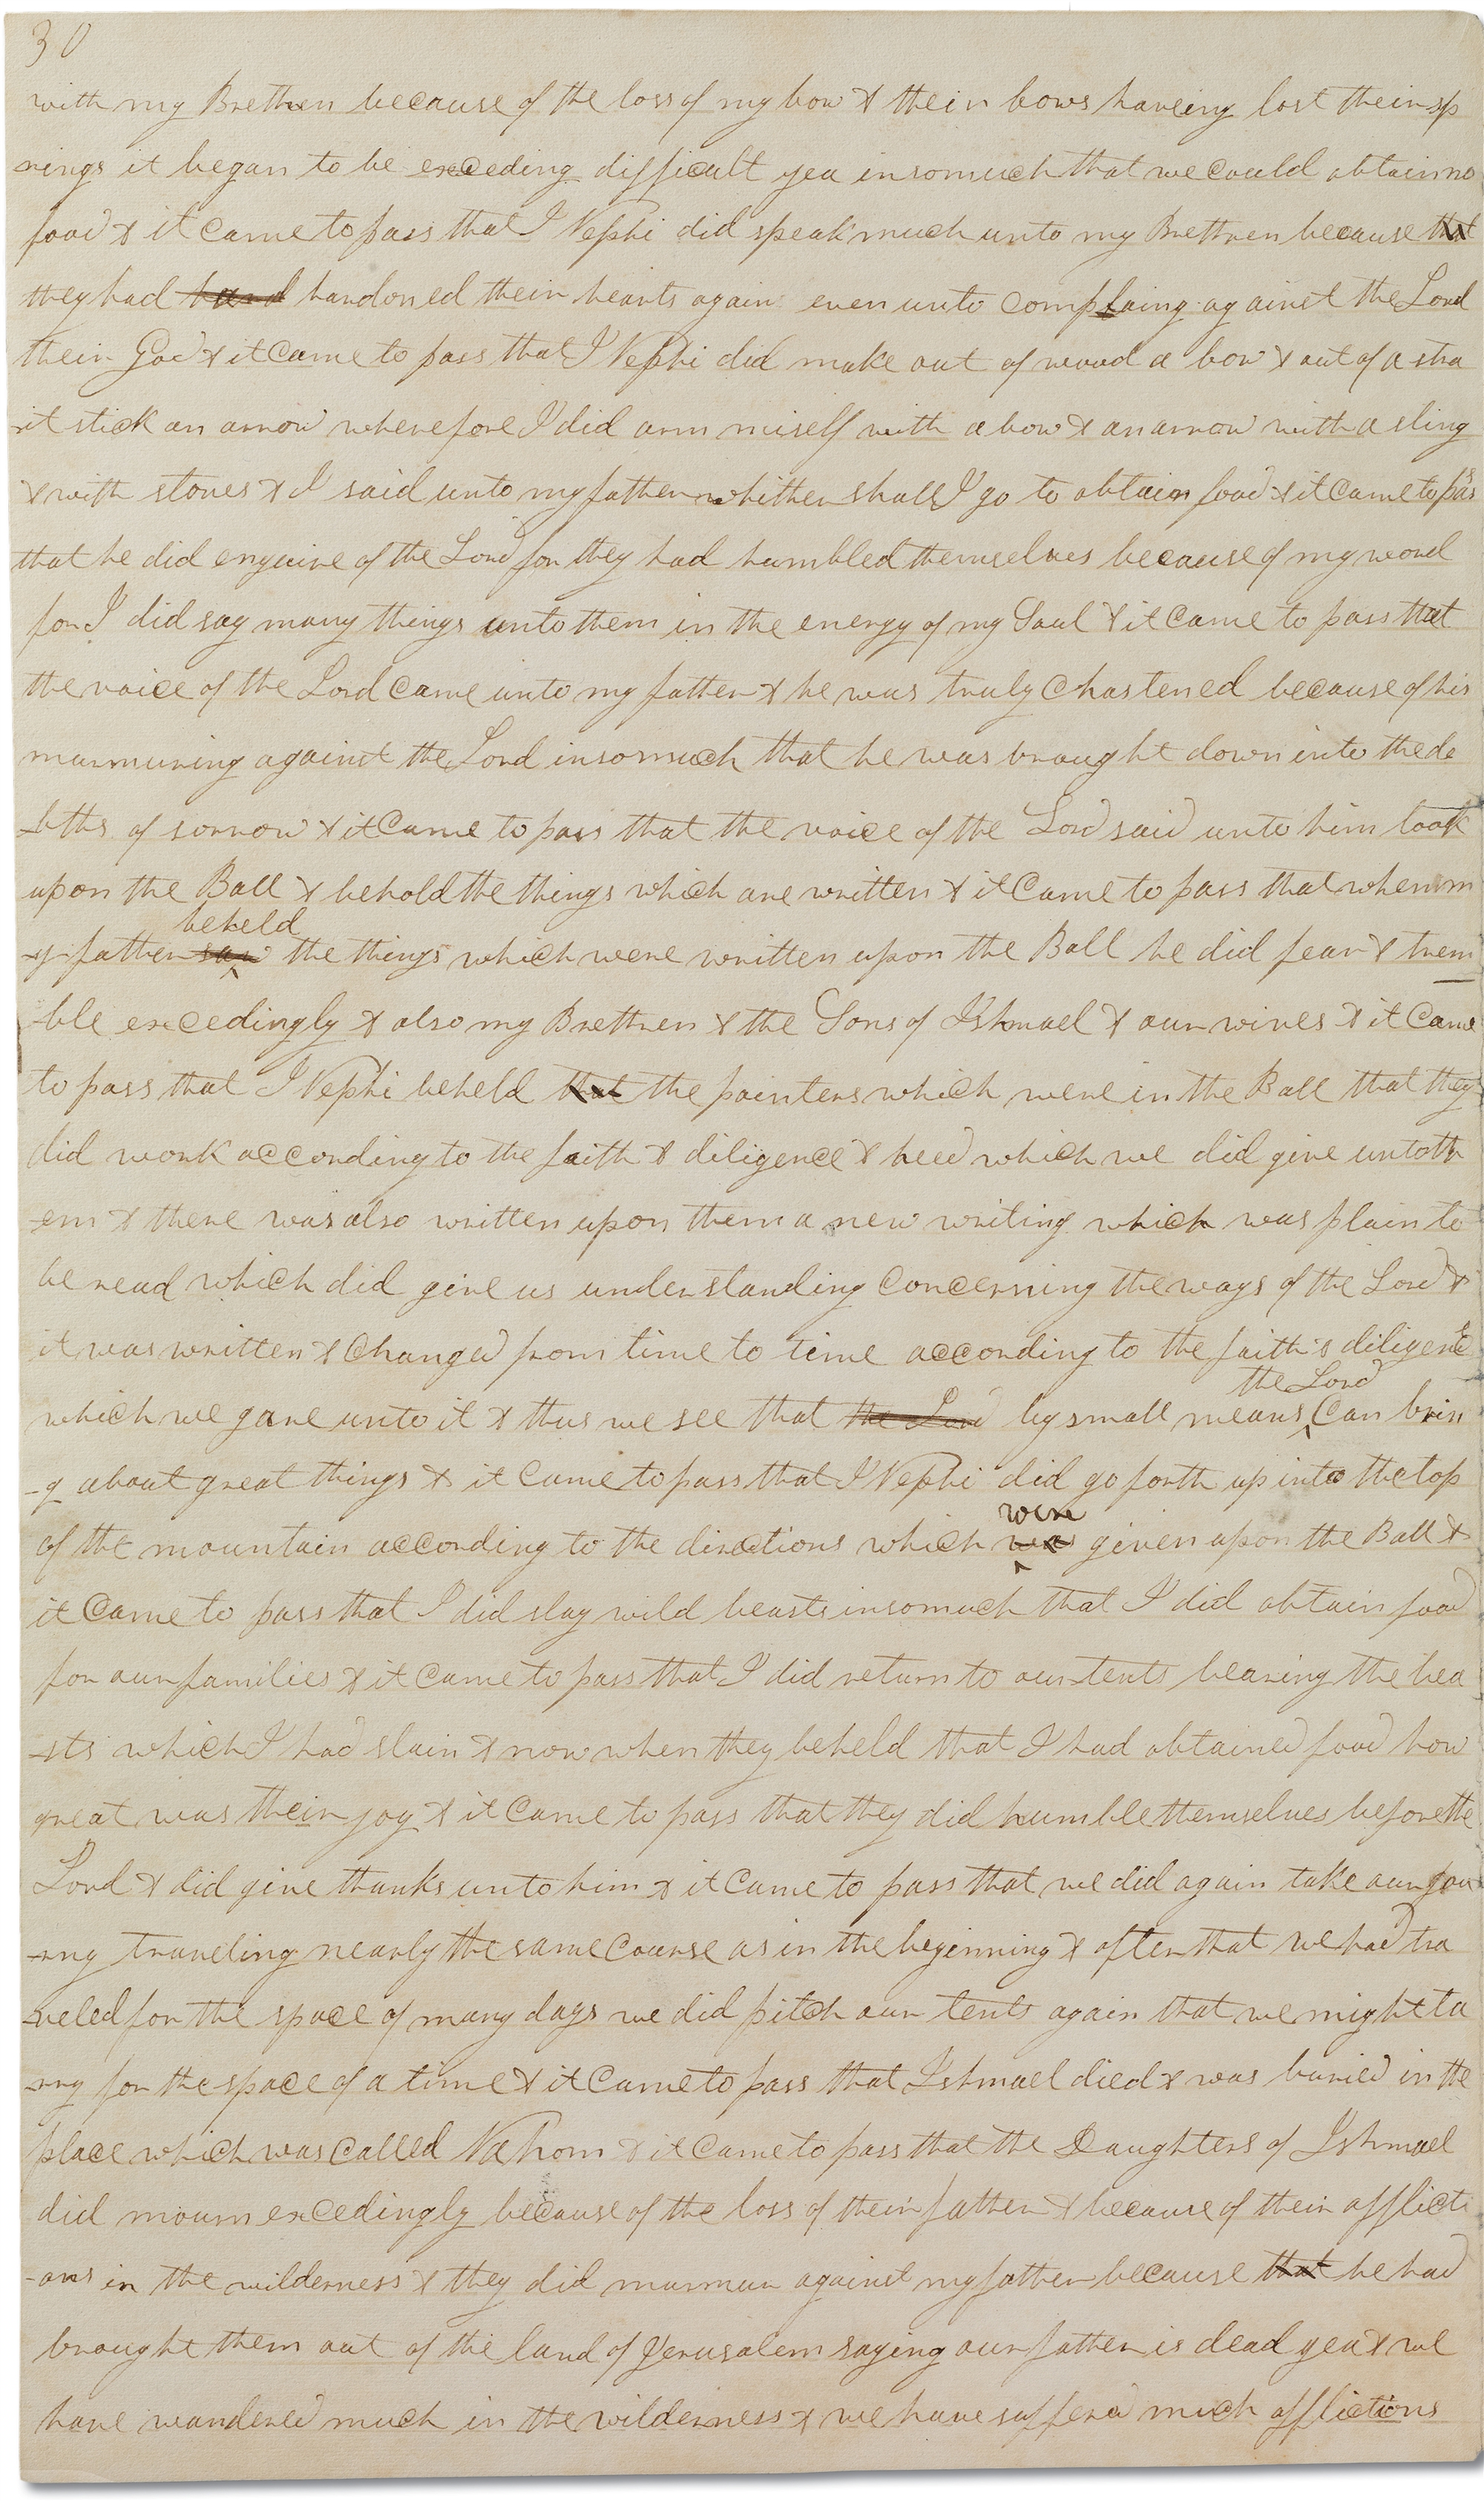 30
with my Brethren because of the loss of my bow & their bows haveing lost their sp
rings it began to be exceeding difficult yea insomuch that we could obtain no
food & it came to pass that I Nephi did speak much unto my Brethren because that
they had hard hardoned their hearts again even unto complaing against the Lord
their God & it came to pass that I Nephi did make out of wood a bow & out of a stra
it stick an arrow wherefore I did arm miself with a bow & an arrow with a sling
& with stones & I said unto my father whither shall I go to obtain food & it came to pass
that he did enquire of the Lord for they had humbled themselves because of my word
for I did say many things unto them in the energy of my Soul & it came to pass that
the voice of the Lord came unto my father & he was truly chastened because of his
murmuring against the Lord insomuch that he was brought down into the de
-pths of sorrow & it came to pass that the voice of the Lord said unto him look
upon the Ball & behold the things which are written & it came to pass that when m
beheld
-y father saw the things which were written upon the Ball he did fear & trem
-ble excedingly & also my Brethren & the Sons of Ishmael & our wives & it came
to pass that I Nephi beheld that the pointers which were in the Ball that they
did work according to the faith & diligence & heed which we did give unto th
-em & there was also written upon them a new writing which was plain to
be read which did give us understanding concerning the ways of the Lord &
it was written & changed from time to time according to the faith & diligence
the Lord
which we gave unto it & thus we see that the Lord by small means can brin
-g about great things & it came to pass that I Nephi did go forth up into the top
were
of the mountain according to the directions which was given upon the Ball &
it came to pass that I did slay wild beasts insomuch that I did obtain food
for our families & it came to pass that I did return to our tents bearing the bea
-sts which I had slain & now when they beheld that I had obtained food how
great was their joy & it came to pass that they did humble themselves before the
Lord & did give thanks unto him & it came to pass that we did again take our jou
-rny traveling nearly the same course as in the beginning & after that we had tra
-veled for the space of many days we did pitch our tents again that we might ta
-rry for the space of a time & it came to pass that Ishmael died & was buried in the
place which was called Nahom & it came to pass that the Daughters of Ishmael
did mourn excedingly because of the loss of their father & because of their afflicti
-ons in the wilderness & they did murmur against my father because that he had
brought them out of the land of Jerusalem saying our father is dead yea & we
have wandered much in the wilderness & we have suffered much afflictions